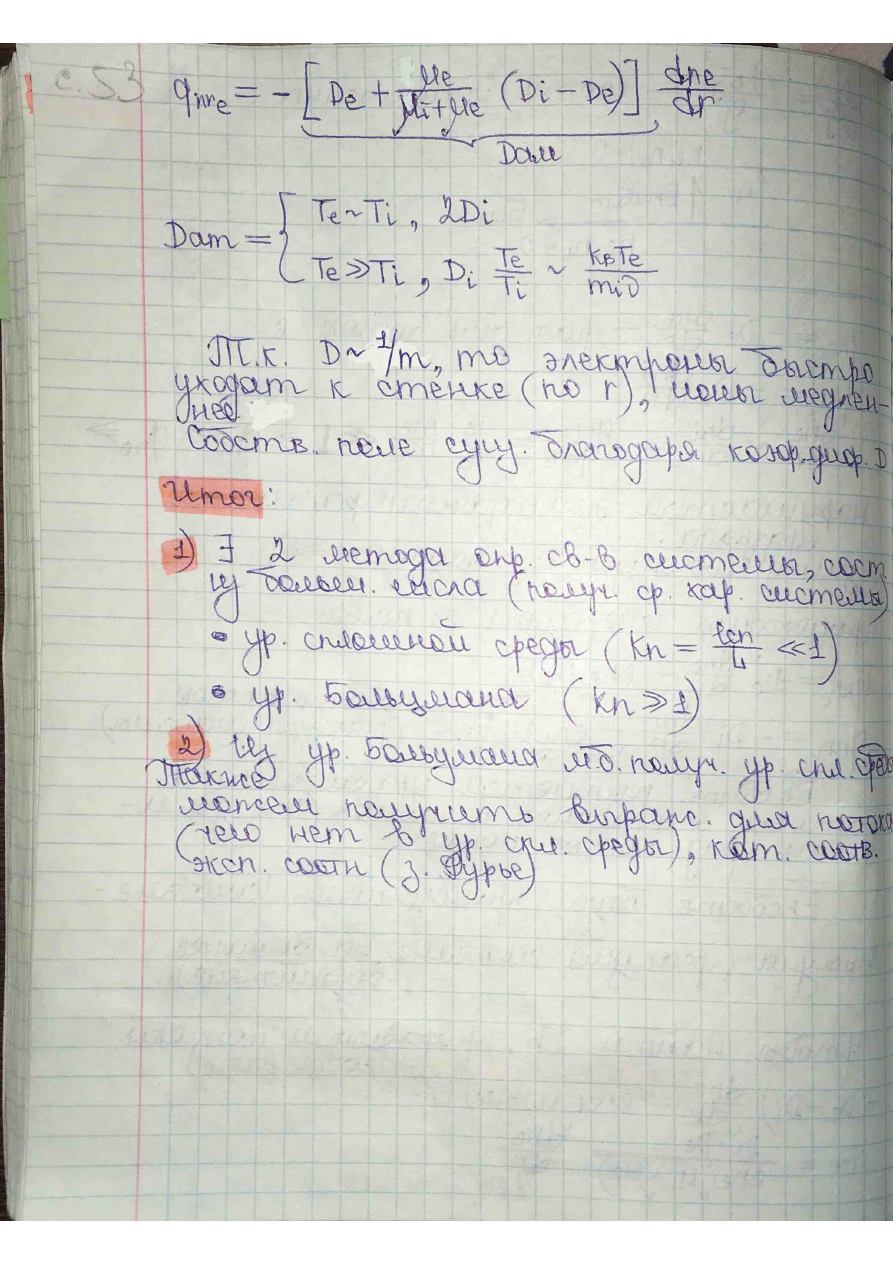 с. 53
q_nre = - [ De + μe/(μi+μe) (Di – De) ] dne/dr
Dам
Dam = { Te ~ Ti , 2Di
Te ≫ Ti , Di Te/Ti ~ kBTe/(miν)
Т.к. D ~ 1/m, то электроны быстро
уходят к стенке (по r), ионы медлен-
нее
Собств. поле сущ. благодаря коэф. диф. D
Итог:
1) ∃ 2 метода опр. св-в системы, сост
из больш. числа (получ. ср. хар. системы)
• ур. сплошной среды (Kn = ℓсп/L ≪ 1)
• ур. Больцмана (Kn ⩾ 1)
2) Из ур. Больцмана мб. получ. ур. спл. среды
Также
можем получить выраж. для потока
(чего нет в ур. спл. среды), кот. соотв.
эксп. соотн (з. Фурье)